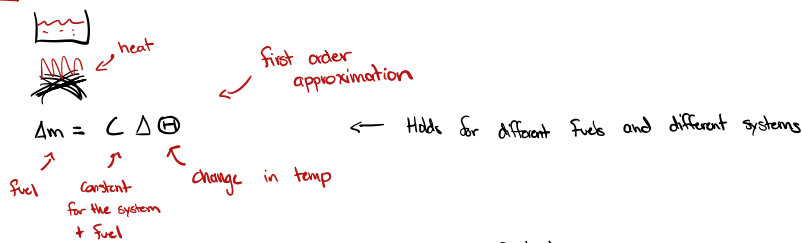 heat
first order
approximation
Δm = C Δ Θ
← Holds for different fuels and different systems
fuel
constant
for the system
+ fuel
change in temp